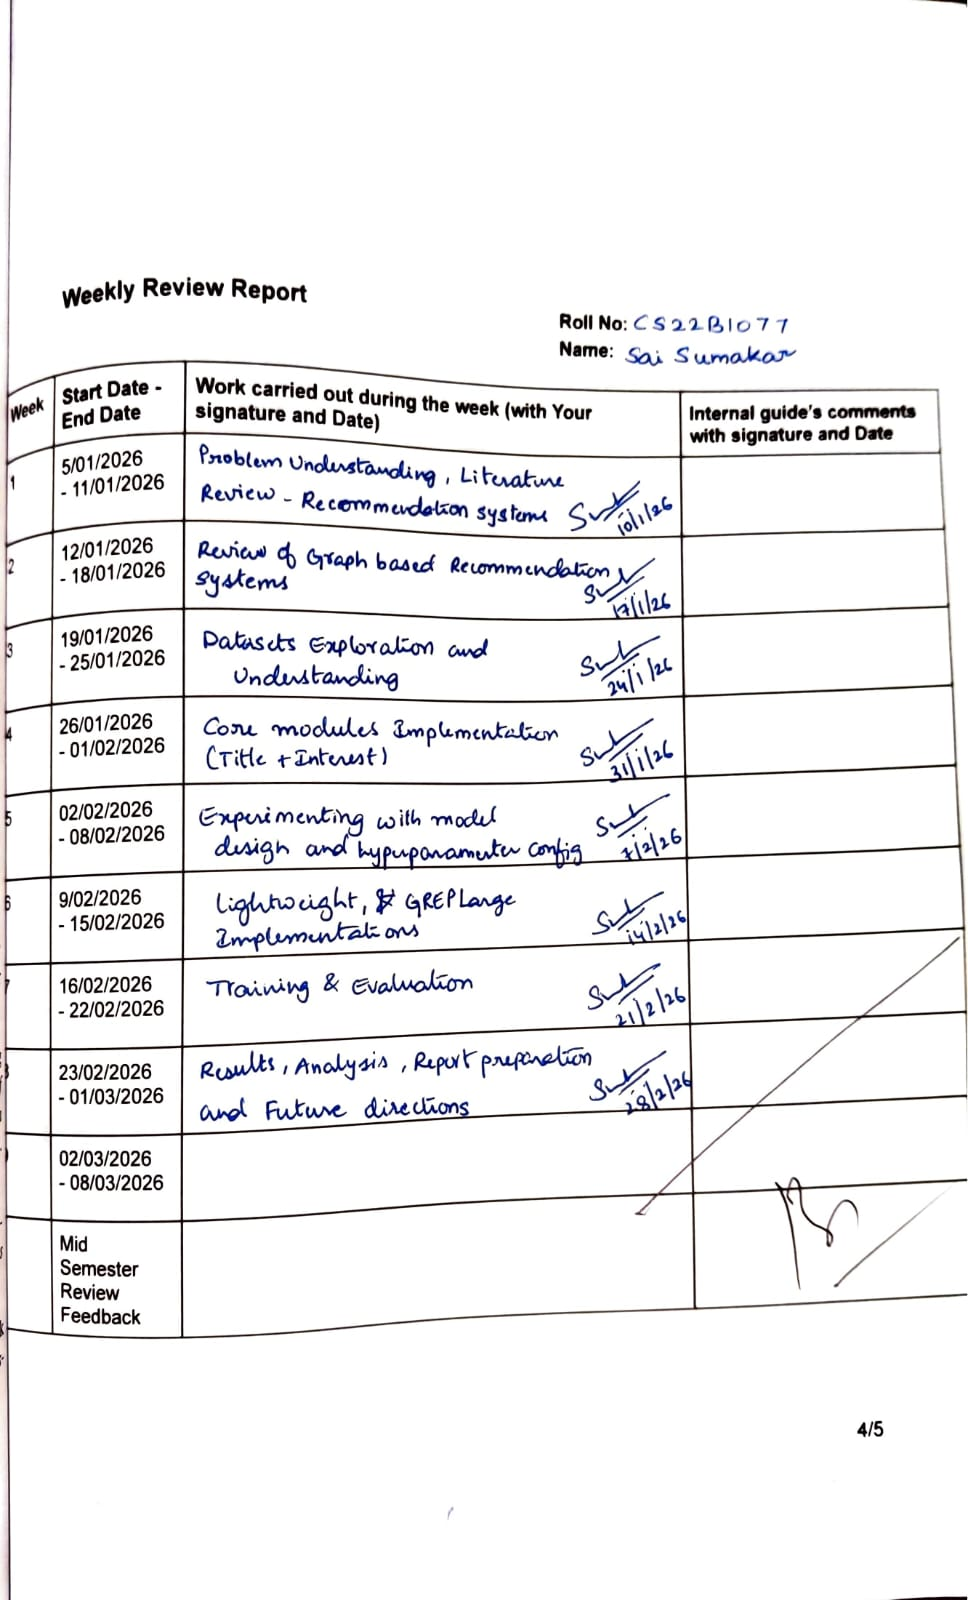 Weekly Review Report
Roll No: CS22B1077
Name: Sai Sumakar
Week
Start Date -
End Date
Work carried out during the week (with Your
signature and Date)
Internal guide's comments
with signature and Date
1
5/01/2026
- 11/01/2026
Problem Understanding, Literature
Review - Recommendation systems
10/1/26
2
12/01/2026
- 18/01/2026
Review of Graph based Recommendation
Systems
17/1/26
3
19/01/2026
- 25/01/2026
Datasets Exploration and
Understanding
24/1/26
4
26/01/2026
- 01/02/2026
Core modules Implementation
(Title + Interest)
31/1/26
5
02/02/2026
- 08/02/2026
Experimenting with model
design and hyperparameter config
7/2/26
6
9/02/2026
- 15/02/2026
Lightweight, & GREPLarge
Implementations
14/2/26
16/02/2026
- 22/02/2026
Training & Evaluation
21/2/26
23/02/2026
- 01/03/2026
Results, Analysis, Report preparation
and Future directions
28/2/26
02/03/2026
- 08/03/2026
Mid
Semester
Review
Feedback
4/5